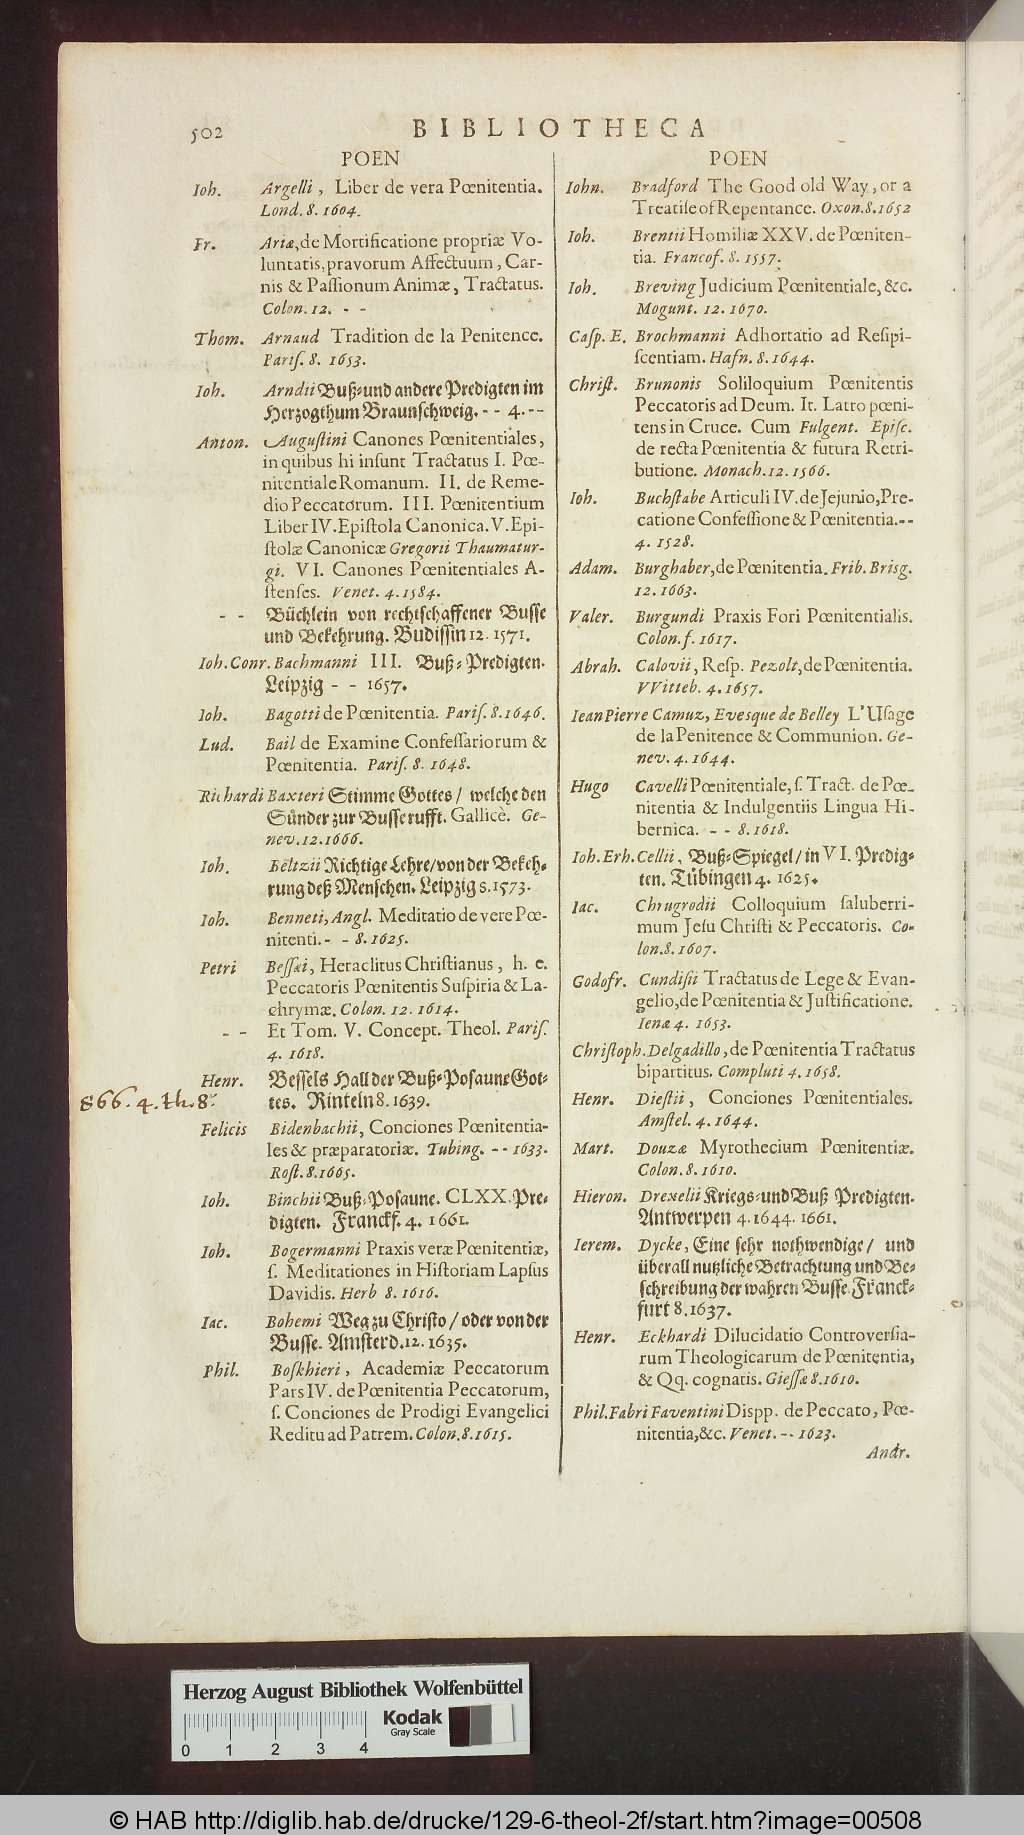 502 BIBLIOTHECA
POEN
Ioh. Argelli, Liber de vera Pœnitentia.
Lond. 8. 1604.
Fr. Ariæ, de Mortificatione propriæ Vo-
luntatis, pravorum Affectuum, Car-
nis & Paſſionum Animæ, Tractatus.
Colon. 12. - -
Thom. Arnaud Tradition de la Penitence.
Pariſ. 8. 1653.
Ioh. Arndii Buß⸗und andere Predigten im
Herzogthum Braunſchweig. - - 4. - -
Anton. Auguſtini Canones Pœnitentiales,
in quibus hi inſunt Tractatus I. Pœ-
nitentiale Romanum. II. de Reme-
dio Peccatorum. III. Pœnitentium
Liber IV. Epiſtola Canonica. V. Epi-
ſtolæ Canonicæ Gregorii Thaumatur-
gi. VI. Canones Pœnitentiales A-
ſtenſes. Venet. 4. 1584.
- - Büchlein von rechtſchaffener Buſſe
und Bekehrung. Budiſſin 12. 1571.
Ioh. Conr. Bachmanni III. Buß⸗Predigten.
Leipzig - - 1657.
Ioh. Bagotti de Pœnitentia. Pariſ. 8. 1646.
Lud. Bail de Examine Confeſſariorum &
Pœnitentia. Pariſ. 8. 1648.
Richardi Baxteri Stimme Gottes / welche den
Sünder zur Buſſe rufft. Gallicè. Ge-
nev. 12. 1666.
Ioh. Beltzii Richtige Lehre/von der Bekeh⸗
rung deß Menſchen. Leipzig s. 1573.
Ioh. Benneti, Angl. Meditatio de vere Pœ-
nitenti. - - 8. 1625.
Petri Beſſæi, Heraclitus Chriſtianus, h. e.
Peccatoris Pœnitentis Suſpiria & La-
chrymæ. Colon. 12. 1614.
- - Et Tom. V. Concept. Theol. Pariſ.
4. 1618.
Henr. Beſſels Hall der Buß⸗Poſaune Got⸗
tes. Rinteln 8. 1639.
866. 4. th. 8º
Felicis Bidenbachii, Conciones Pœnitentia-
les & præparatoriæ. Tubing. - - 1633.
Roſt. 8. 1605.
Ioh. Binchii Buß⸗Poſaune. CLXX. Pre⸗
digten. Franckf. 4. 1661.
Ioh. Bogermanni Praxis veræ Pœnitentiæ,
ſ. Meditationes in Hiſtoriam Lapſus
Davidis. Herb 8. 1616.
Iac. Bohemi Weg zu Chriſto / oder von der
Buſſe. Amſterd. 12. 1635.
Phil. Boſkhieri, Academiæ Peccatorum
Pars IV. de Pœnitentia Peccatorum,
ſ. Conciones de Prodigi Evangelici
Reditu ad Patrem. Colon. 8. 1615.
POEN
Iohn. Bradford The Good old Way, or a
Treatiſe of Repentance. Oxon. 8. 1652
Ioh. Brentii Homiliæ XXV. de Pœniten-
tia. Francof. 8. 1557.
Ioh. Breving Judicium Pœnitentiale, &c.
Mogunt. 12. 1670.
Caſp. E. Brochmanni Adhortatio ad Reſipi-
ſcentiam. Hafn. 8. 1644.
Chriſt. Brunonis Soliloquium Pœnitentis
Peccatoris ad Deum. It. Latro pœni-
tens in Cruce. Cum Fulgent. Epiſc.
de recta Pœnitentia & futura Retri-
butione. Monach. 12. 1566.
Ioh. Buchſtabe Articuli IV. de Jejunio, Pre-
catione Confeſſione & Pœnitentia. - -
4. 1528.
Adam. Burghaber, de Pœnitentia. Frib. Brisg.
12. 1663.
Valer. Burgundi Praxis Fori Pœnitentialis.
Colon. f. 1617.
Abrah. Calovii, Reſp. Pezolt, de Pœnitentia.
VVitteb. 4. 1657.
Iean Pierre Camuz, Evesque de Belley L'Uſage
de la Penitence & Communion. Ge-
nev. 4. 1644.
Hugo Cavelli Pœnitentiale, ſ. Tract. de Pœ-
nitentia & Indulgentiis Lingua Hi-
bernica. - - 8. 1618.
Ioh. Erh. Cellii, Buß⸗Spiegel / in VI. Predig⸗
ten. Tübingen 4. 1625.
Iac. Chrugrodii Colloquium ſaluberri-
mum Jeſu Chriſti & Peccatoris. Co-
lon. 8. 1607.
Godofr. Cundiſii Tractatus de Lege & Evan-
gelio, de Pœnitentia & Juſtificatione.
Ienæ 4. 1653.
Chriſtoph. Delgadillo, de Pœnitentia Tractatus
bipartitus. Compluti 4. 1658.
Henr. Dieſtii, Conciones Pœnitentiales.
Amſtel. 4. 1644.
Mart. Douzæ Myrothecium Pœnitentiæ.
Colon. 8. 1610.
Hieron. Drexelii Kriegs⸗und Buß Predigten.
Antwerpen 4. 1644. 1661.
Ierem. Dycke, Eine ſehr nothwendige / und
überall nutzliche Betrachtung und Be⸗
ſchreibung der wahren Buſſe. Franck⸗
furt 8. 1637.
Henr. Eckhardi Dilucidatio Controverſia-
rum Theologicarum de Pœnitentia,
& Qq. cognatis. Gieſſæ 8. 1610.
Phil. Fabri Faventini Dispp. de Peccato, Pœ-
nitentia, &c. Venet. - - 1623.
Andr.
Herzog August Bibliothek Wolfenbüttel
Kodak
Gray Scale
0 1 2 3 4
© HAB http://diglib.hab.de/drucke/129-6-theol-2f/start.htm?image=00508